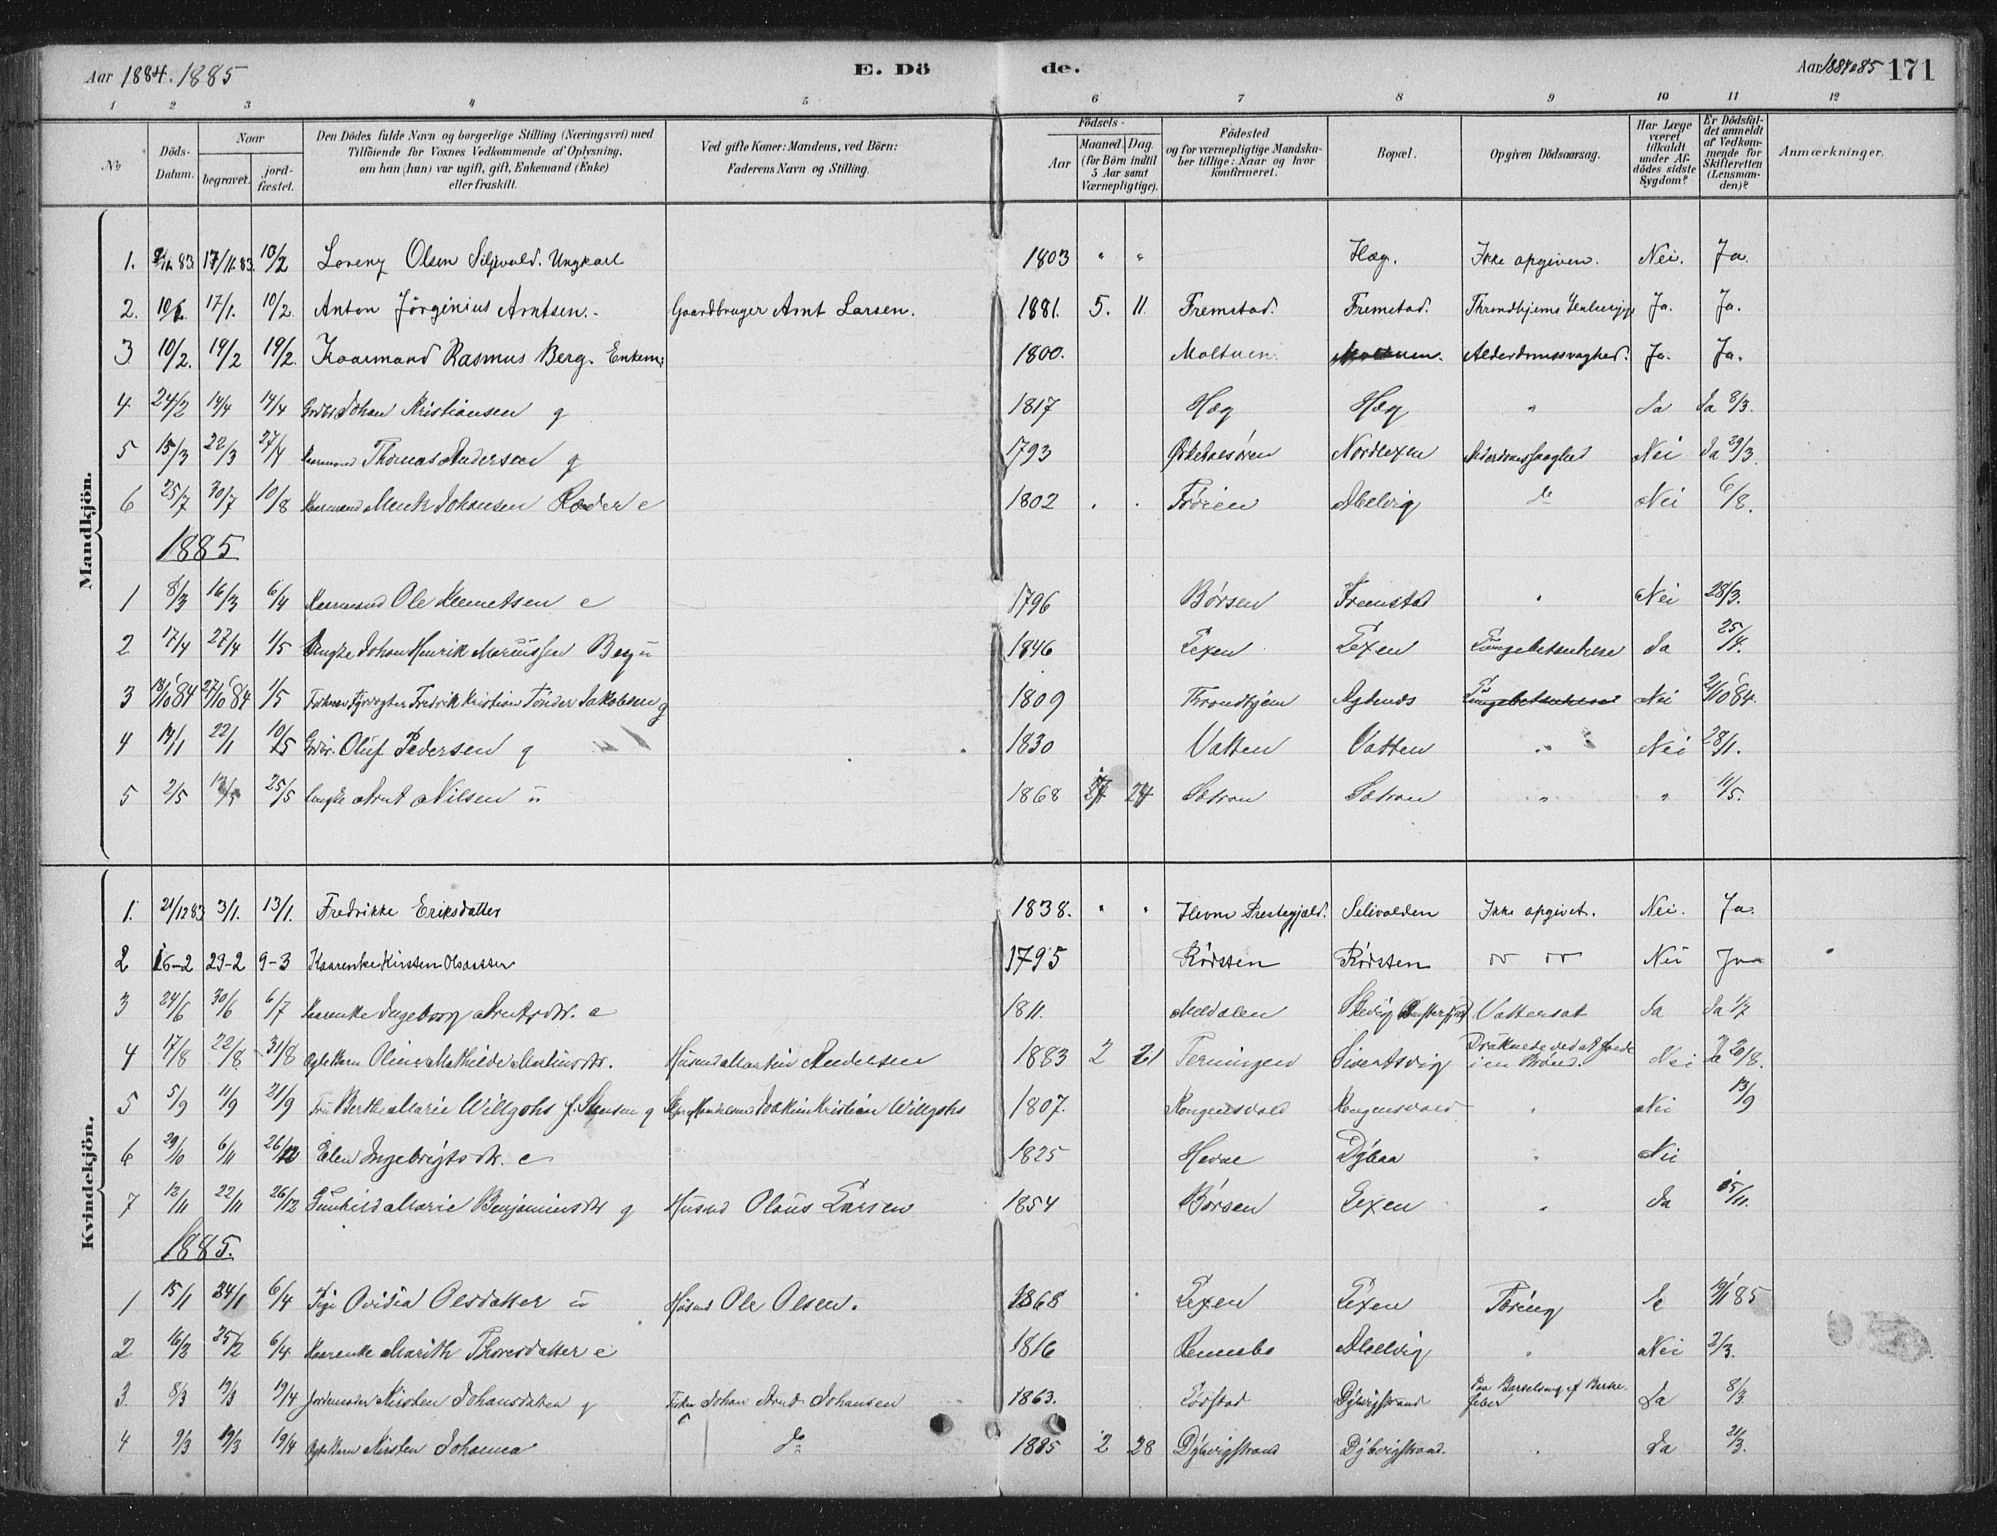 Aar 1884. 1885
E. Dö
de.
Aar 1884 o 85 171
1 2 3 4 5 6 7 8 9 10 11 12
No
Döds-Datum.
Naar
begravet.
jordfæstet.
Den Dödes fulde Navn og borgerlige Stilling (Næringsvei) med
Tilföiende for Voxnes Vedkommende af Oplysning,
om han (hun) var ugift, gift, Enkemand (Enke)
eller fraskilt.
Ved gifte Koner: Mandens, ved Börn:
Faderens Navn og Stilling.
Födsels-
Aar
Maaned. Dag.
(for Börn indtil
5 Aar samt
Værnepligtige).
Födested
og for værnepligtige Mandskaber tillige: Naar og hvor
konfirmeret.
Bopæl.
Opgiven Dödsaarsag.
Har Læge
været
tilkaldt
under Afdödes sidste
Sygdom?
Er Dödsfaldet anmeldt
af Vedkommende for
Skifteretten
(Lensmanden)?
Anmærkninger.
Mandkjön.
1. 83. 17/11.83. 10/2 Lorenz Olsen Selivold. Ungkarl 1803 " " Hæg. Ikke opgiven. Nei. Ja.
2. 17/1. 10/2. Anton Jörginius Arntsen. Gaardbruger Arnt Larsen. 1881. 5. 11 Fremstad. Fremstad. Throndhjems Ja. Ja.
3 10/2. 19/2 19/2. Kaarmand Rasmus Berg. Enkem: 1800. Moltuen. Moltuen. Alderdomssvaghed. Ja. Ja.
4 24/2 14/4 14/4 Johan Kristiansen g 1817 Hæg Hæg " Ja Ja 8/3.
5 15/3 22/3 27/4 Kaarmand Thomas Andersen g 1793 Nordlexen Nei Ja 29/3.
6 25/7 30/7 10/8 Kaarmand Mentz Johansen Ræder e 1802 . . Abelvig do Nei 6/8.
1885
1 8/3 16/3 6/4 Kaarmand Ole Klemetsen e 1796 Børsen Fremstad " Nei 28/3.
2 17/4 27/4 1/5 Ungke Johan Henrik Mariussen Berg u 1846 Lexen Lexen Lungebetændelse Ja 25/4.
3 18/10 84 27/10 84 1/5 Fredrik Kristian Tönder Jakobsen g 1809 Throndhjem Agdenes Lungebetændelse Nei 21/10 84.
4 14/1 22/1 10/5 Gdbr. Oluf Pedersen g 1830 Vatten Vatten " Nei 28/1.
5 2/5 25/5 Ungke Arnt Nilsen u 1868 24 Sætran Sætran " " 11/5.
Kvindekjön.
1. 21/12 83 3/1. 13/1. Fredrikke Eriksdatter 1838. " " Hevne Prestegjæld. Selivolden Ikke opgivet. Nei. Ja.
2 16-2 29-2 9-3 Kaarenke Kirsten Olsdatter 1795 Rödsten Rödsten Nei Ja
3 24/6 30/6 6/7 Kaarenke Ingeborg Arntsdtr. e 1811. Meldalen Skevig Vattersot Ja Ja 1/7
4 17/8 22/8 31/8 Oline Mathilde Martinsdtr. Husmd Martin Andersen 1883 2 21 Terningen Sivertsvig Druknede ved at falde i en Brönd. Nei Ja 20/8.
5 5/9 11/9 21/9 Fru Berthe Marie Willgohs f. g Joakim Kristian Willgohs 1807. Kongensvold Kongensvold " Nei 13/9
6 29/10 6/11 26/12 Elen Ingebrigtsdtr. e 1825 Hevne " Nei
7 12/11 22/11 26/12 Gunhild Marie Benjaminsdtr g Husmd Olaus Larsen 1854 Børsen Lexen " Ja 15/11.
1885.
1 15/1 24/1 6/4 Pige Ovidia Olsdatter u Husmd Ole Olsen. 1868 Lexen Lexen Tæring Ja 19/1 85
2 16/2 25/2 6/4 Kaarenke Marith Thoresdatter e 1816 Rennebo Abelvig " Nei 2/3.
3. 8/3 19/3 19/4 Jordemoder Kirsten Johansdatter g Johan Arnt Johansen 1863. Dybvigstrand Paa Barselseng af Barselfeber Ja 8/3.
4 9/3 19/3 19/4 Kirsten Johanna do 1885 2 28 Dybvigstrand Dybvigstrand. . Ja 21/3.